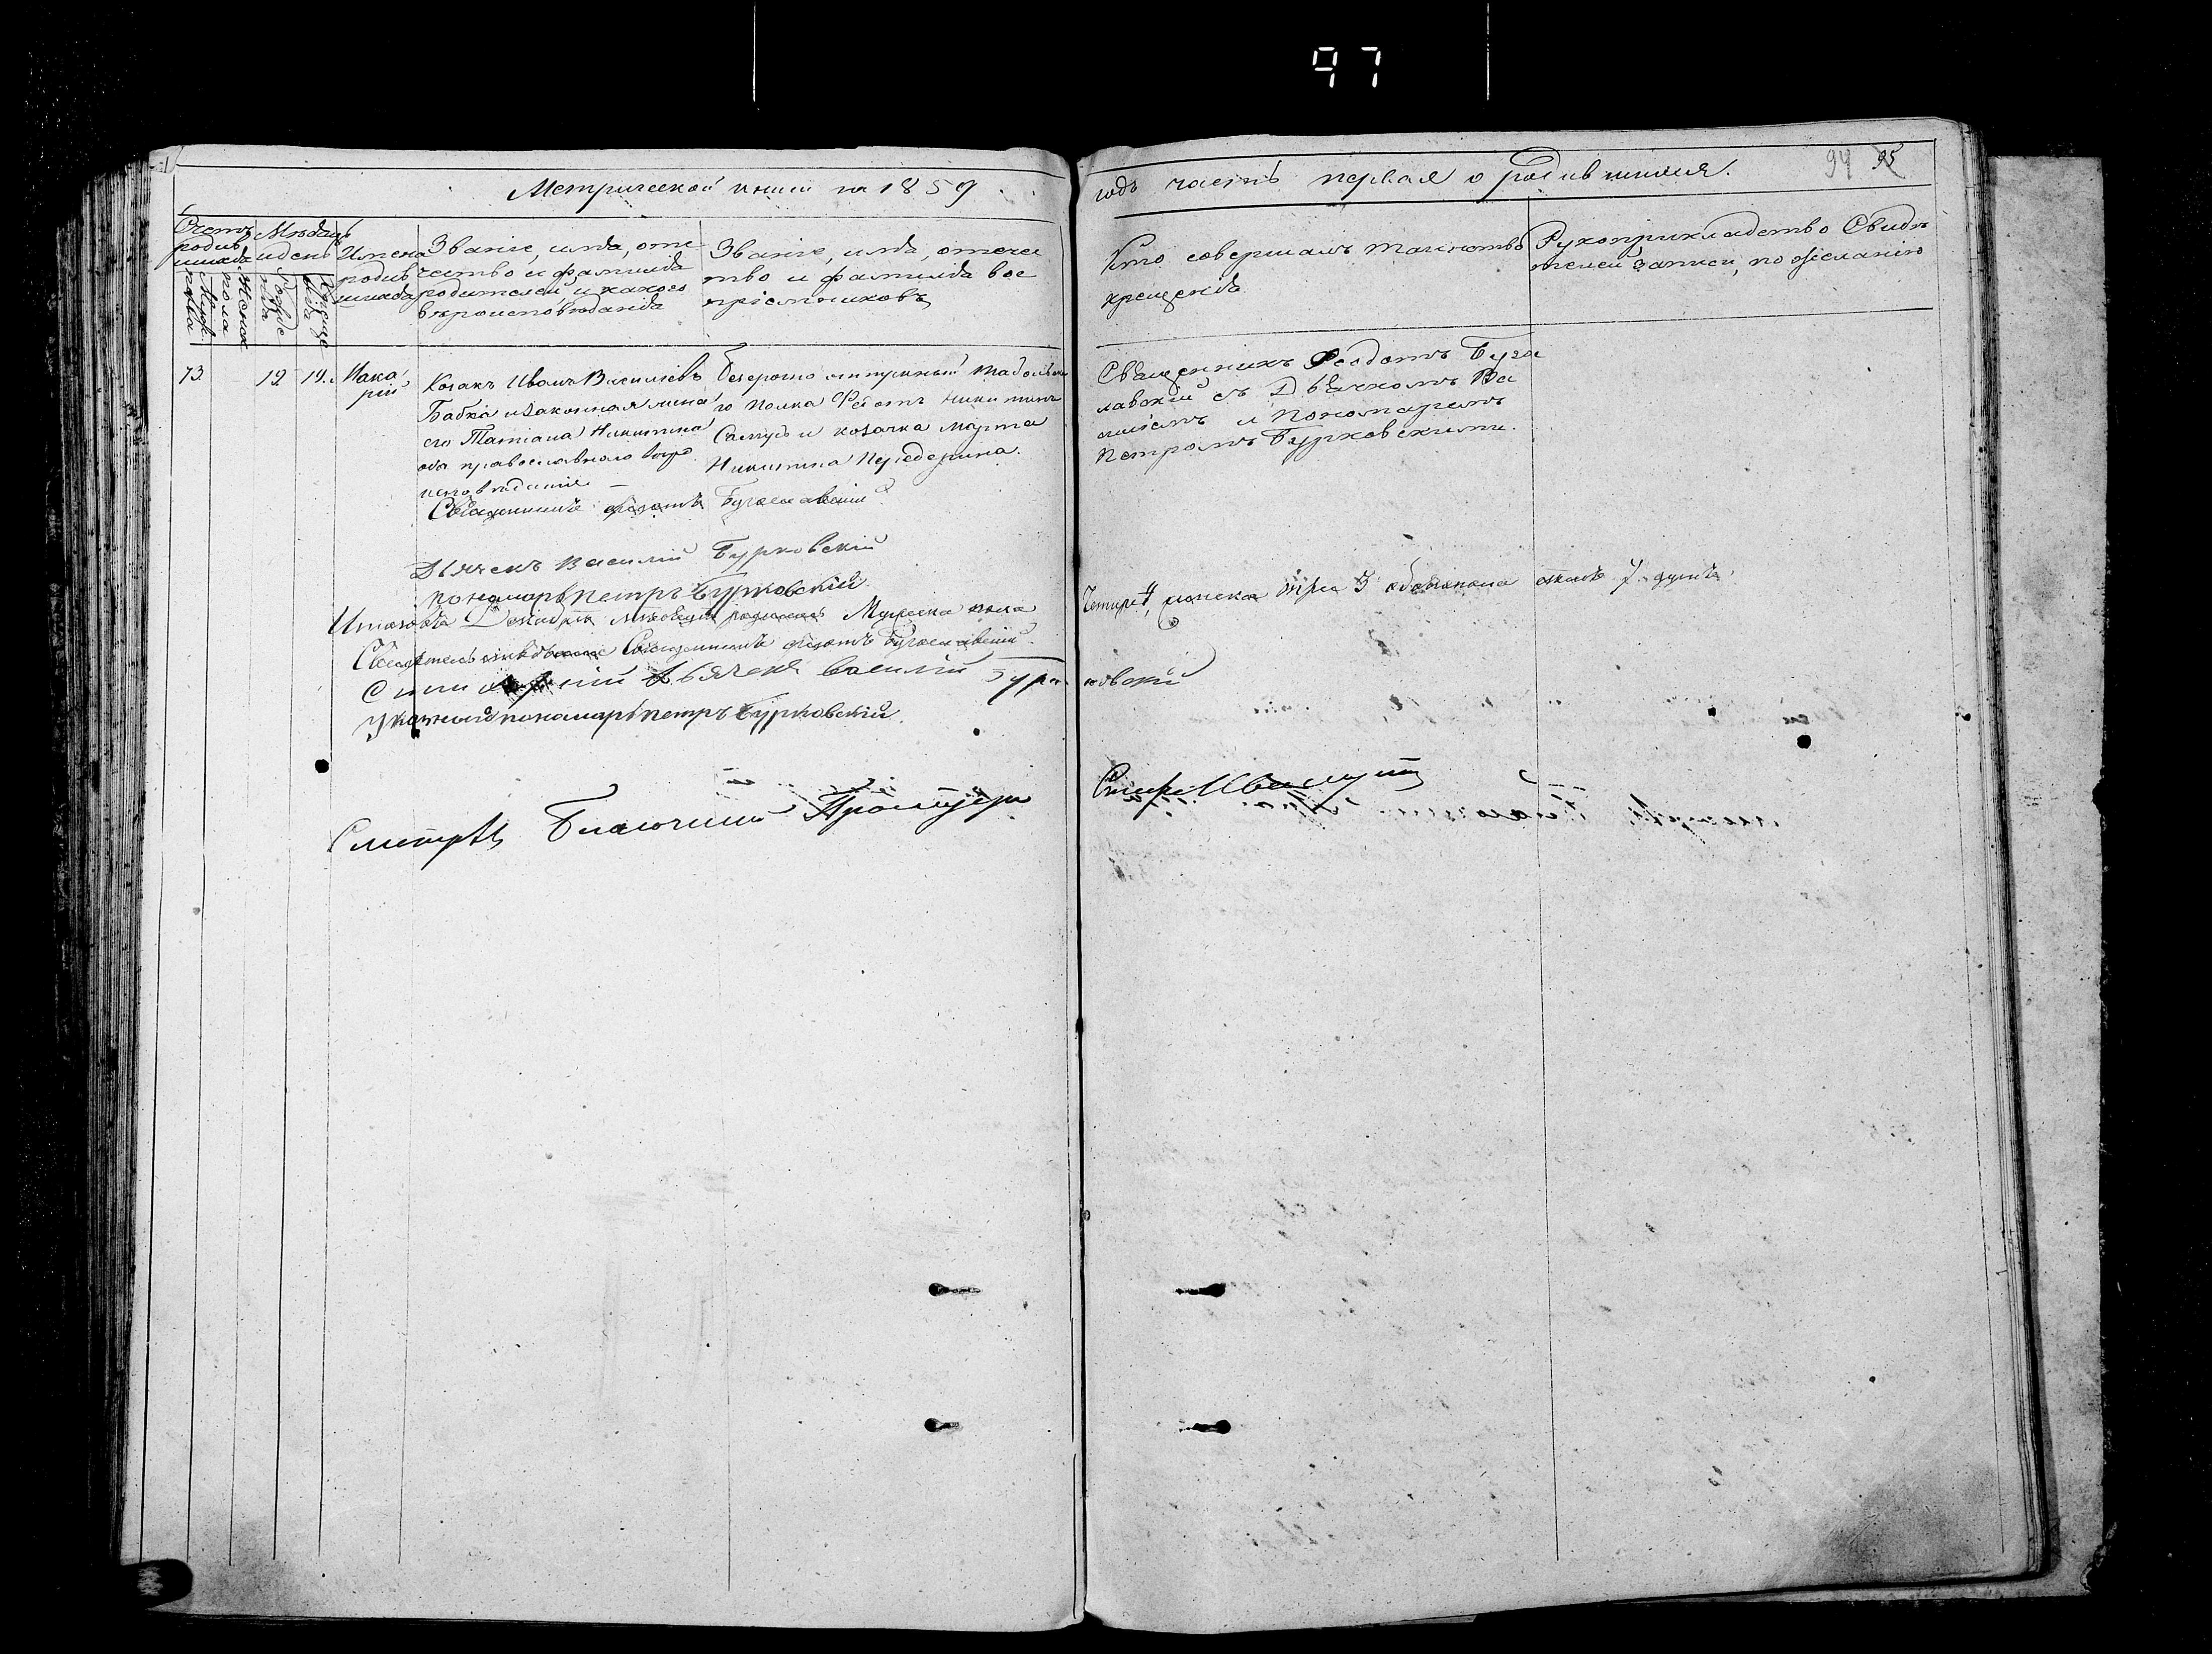 97
Метрической книги на 1859
годъ часть первая о родившихся.
94 95
Счетъ родив шихся
Мужеска пола
Женска пола
Мѣсяцъ и день
Рожденія
Крещенія
Имена родив шихся
Званіе, имя, оте
чество и фамилія
родителей и какого
вѣроисповѣданія
Званіе, имя, отчес
тво и фамилія вос
пріемниковъ
Кто совершалъ таинство
крещенія
Рукоприкладство свидѣ
телей записи, по желанію
73.
12
19.
Мака
рій
Козакъ Иванъ Василіевъ
Бабка и законная жена
его Татіана Никитина
оба православнаго вѣро
исповѣданія
Безсрочно отпускный
го полка Федотъ Никитинъ
и козачка Марта
Никитина Передерина.
Священникъ Феодотъ Бугос
лавскій съ Дьячкомъ Ва
силіемъ и Пономаремъ
Петромъ Бурковскими.
Священникъ Федотъ Бугославскій
Дьячекъ Василій Бурковскій
пономарь петръ Бурковскій
Итого въ Декабрѣ мѣсяцѣ родилось Мужеска пола
Четыре 4, женска три 3 обоего пола 7. душъ
Священникъ Федотъ Бугославскій
Дьячекъ Василій Бурковскій
Указный пономарь петръ Бурковскій.
Смотрѣлъ Благочинный